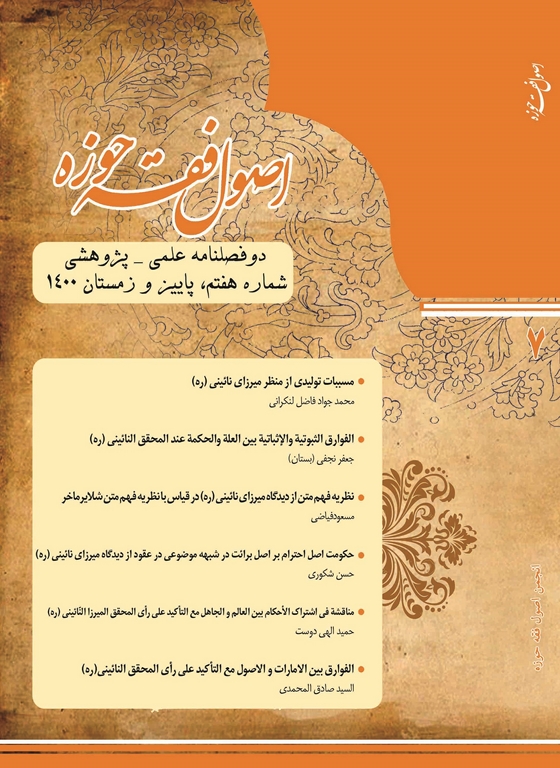 اصول فقه حوزه
اصول فقه حوزه
دوفصلنامه علمی _ پژوهشی
شماره هفتم، پاییز و زمستان ۱۴۰۰
۷
مسببات تولیدی از منظر میرزای نائینی (ره)
محمد جواد فاضل لنکرانی
الفوارق الثبوتیة والإثباتیة بین العلة والحکمة عند المحقق النائینی (ره)
جعفر نجفی (بستان)
نظریه فهم متن از دیدگاه میرزای نائینی (ره) در قیاس با نظریه فهم متن شلایر ماخر
مسعودفیاضی
حکومت اصل احترام بر اصل برائت در شبهه موضوعی در عقود از دیدگاه میرزای نائینی (ره)
حسن شکوری
مناقشة فی اشتراک الأحکام بین العالم و الجاهل مع التأکید علی رأی المحقق المیرزا النّائینی (ره)
حمید الهی دوست
الفوارق بین الامارات و الاصول مع التأکید علی رأی المحقق النائینی(ره)
السید صادق المحمدی
انجمن اصول فقه حوزه